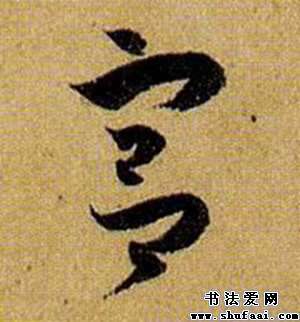 宫
书法爱网
www.shufaai.com